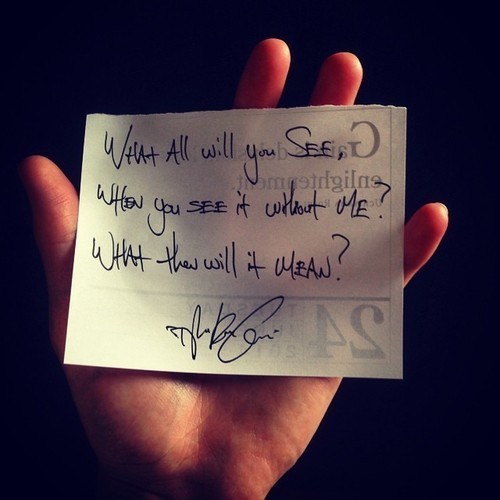 What All will you SEE,
When you SEE it without ME?
What then will it MEAN?
Ga
enlightenment.
24